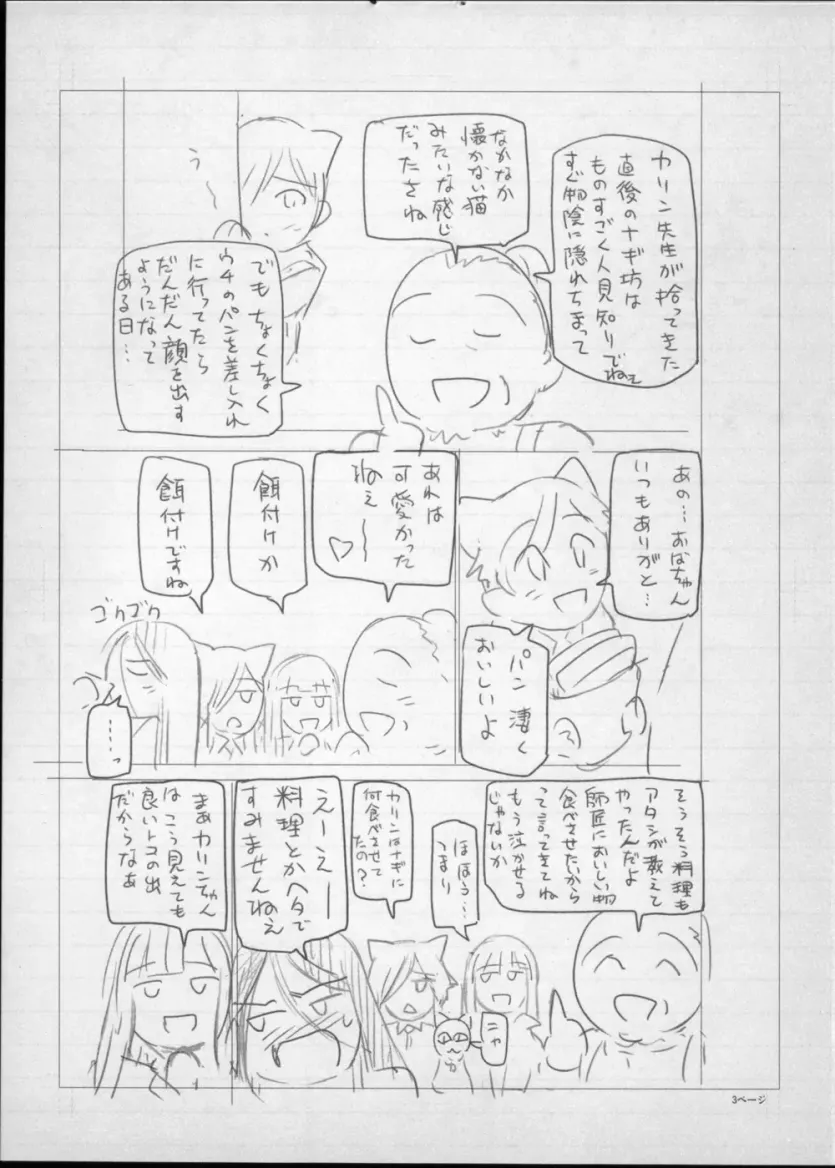 カリン先生が拾ってきた
直後のナギ坊は
ものすごく人見知りでねェ
すぐ物陰に隠れちまって
なかなか
懐かない猫
みたいな感じ
だったさね
う
でもちょくちょく
ウチのパンを差し入れ
に行ってたら
だんだん顔を出す
ようになって
ある日…
あの…おばちゃん
いつもありがと…
パン凄く
おいしいよ
あれは
可愛かった
ねぇ〜♡
餌付けか
餌付けですね
ゴクゴク
……っ
そうそう料理も
アタシが教えて
やったんだよ
師匠においしい物
食べさせたいから
って言ってきてね
もう泣かせる
じゃないか
ほほう…
つまり
カリンはナギに
何食べさせて
たの?
ニャ
えーえー
料理とかヘタで
すみませんねえ
まぁカリンちゃん
はこう見えても
良いトコの出
だからなぁ
3ページ